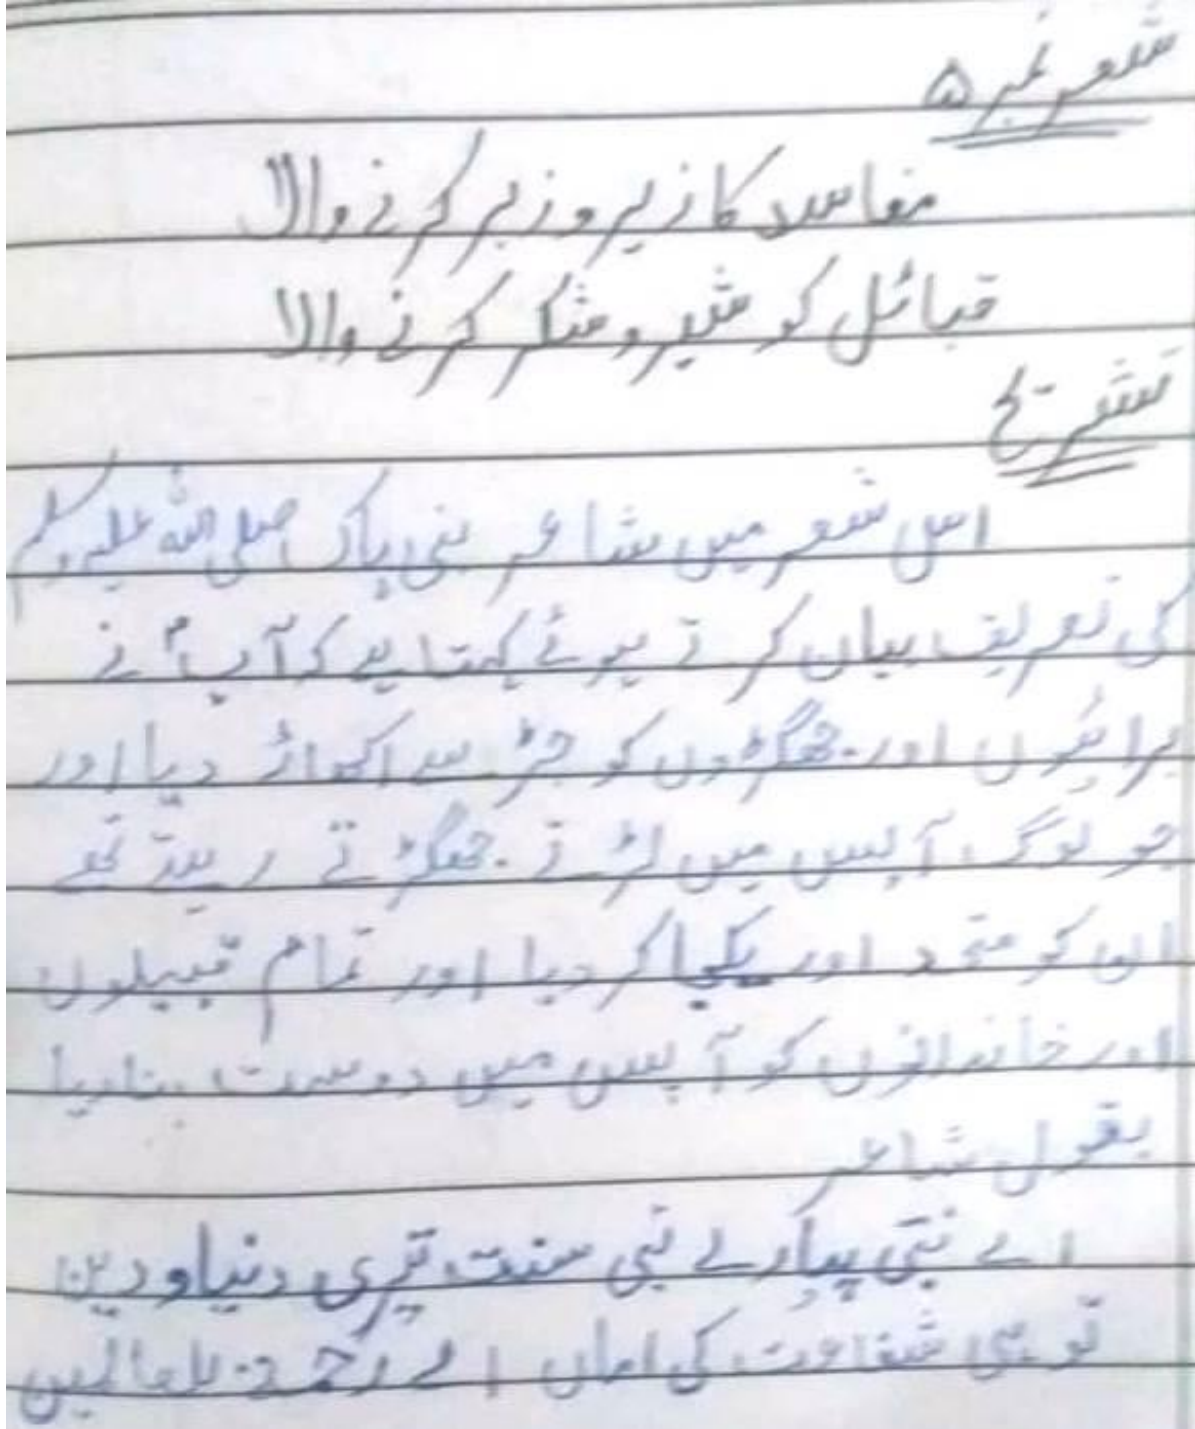 شعر نمبر ۵
مفاسد کا زیر و زبر کرنے والا
قبائل کو شیر و شکر کرنے والا
تشریح
اس شعر میں شاعر نبی پاک صلی اللہ علیہ وسلم
کی تعریف بیان کرتے ہوئے کہتا ہے کہ آپؐ نے
برائیوں اور جھگڑوں کو جڑ سے اکھاڑ دیا اور
جو لوگ آپس میں لڑتے جھگڑتے رہتے تھے
ان کو متحد اور یکجا کر دیا اور تمام قبیلوں
اور خاندانوں کو آپس میں دوست بنا دیا
بقول شاعر
اے نبی پیارے نبی سنت تیری دنیا و دین
تو ہی شفاعت کی اماں اے رحمۃ للعالمین